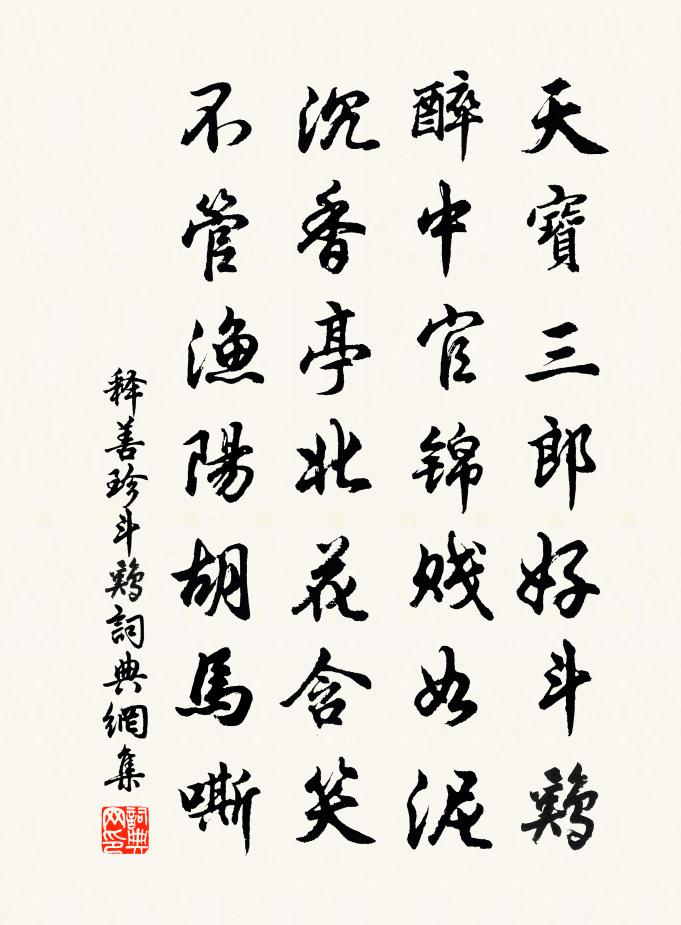 天寶三郎好斗鷄
醉中官錦賤如泥
沉香亭北花含笑
不管漁陽胡馬嘶
释善珍斗鷄詞典網集
詞典网印